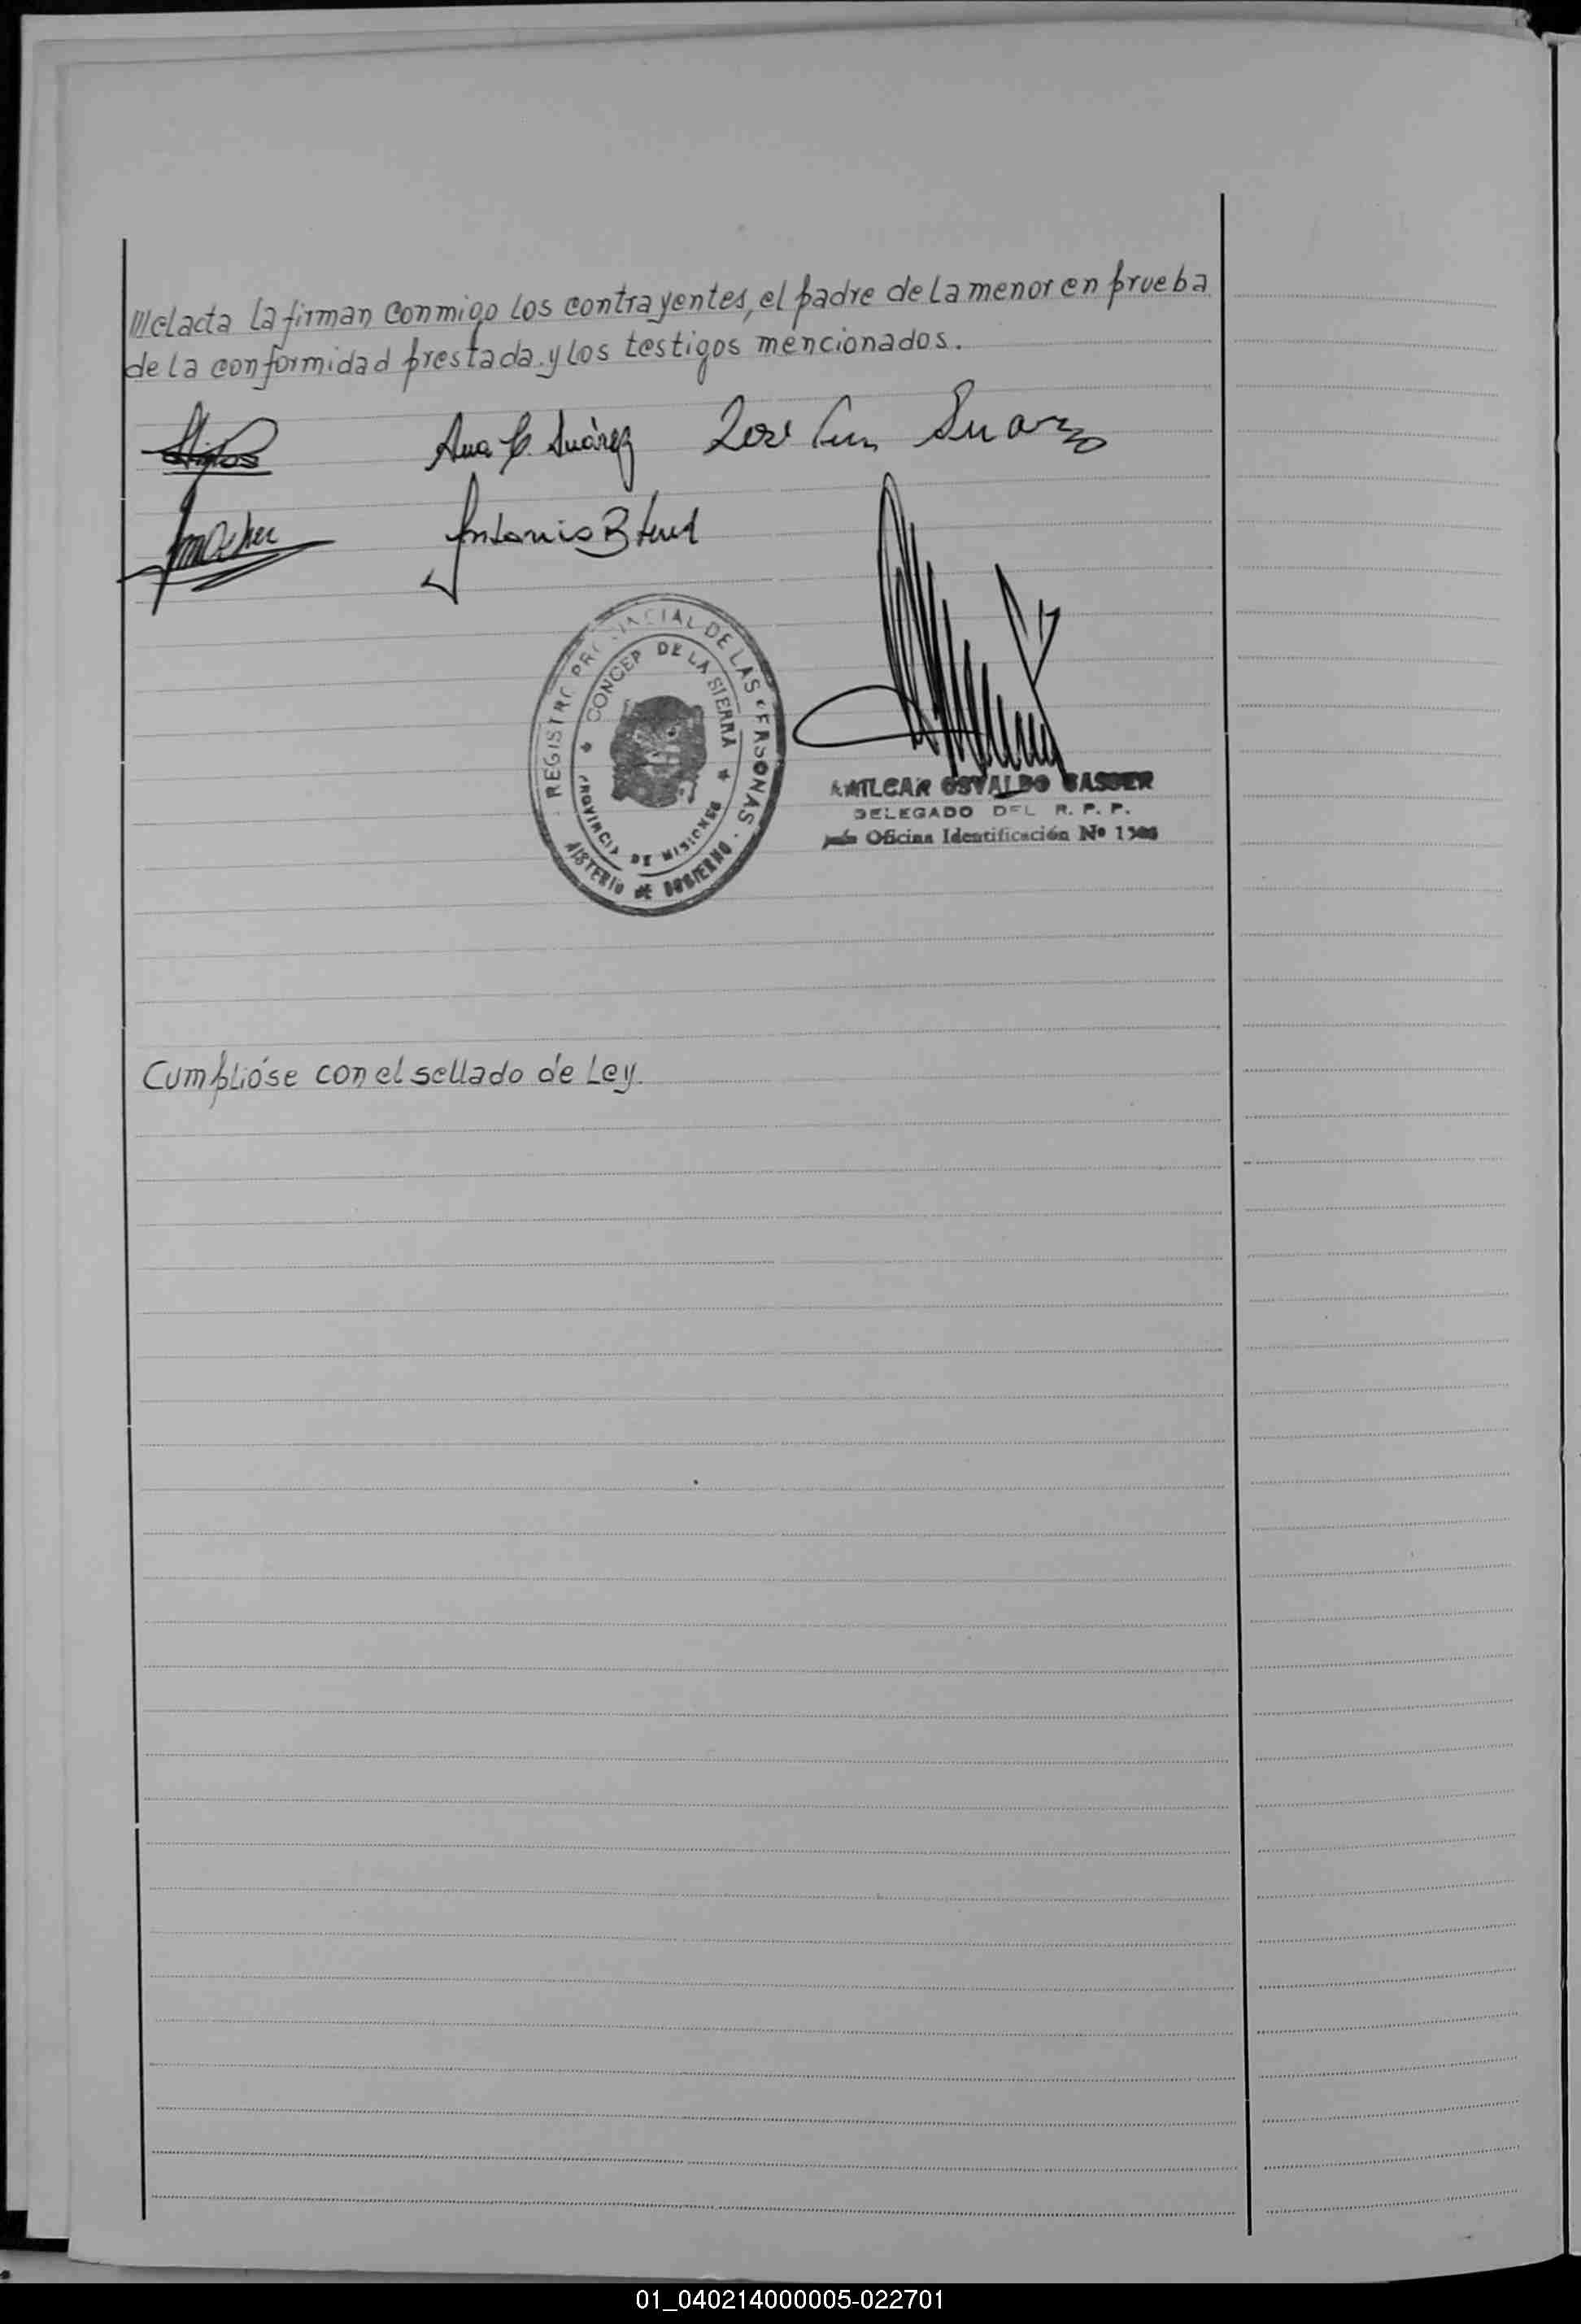 ///el acta la firman conmigo los contrayentes, el padre de la menor en prueba
de la conformidad prestada. y los testigos mencionados.
Ana C. Suárez José Suarez
Antonio B
REGISTRO PROVINCIAL DE LAS PERSONAS
CONCEP DE LA SIERRA
PROVINCIA DE MISIONES
MINISTERIO DE GOBIERNO
AMILCAR OSVALDO
DELEGADO DEL R. P. P.
Oficina Identificación Nº
Cumplióse con el sellado de Ley.
01_040214000005-022701